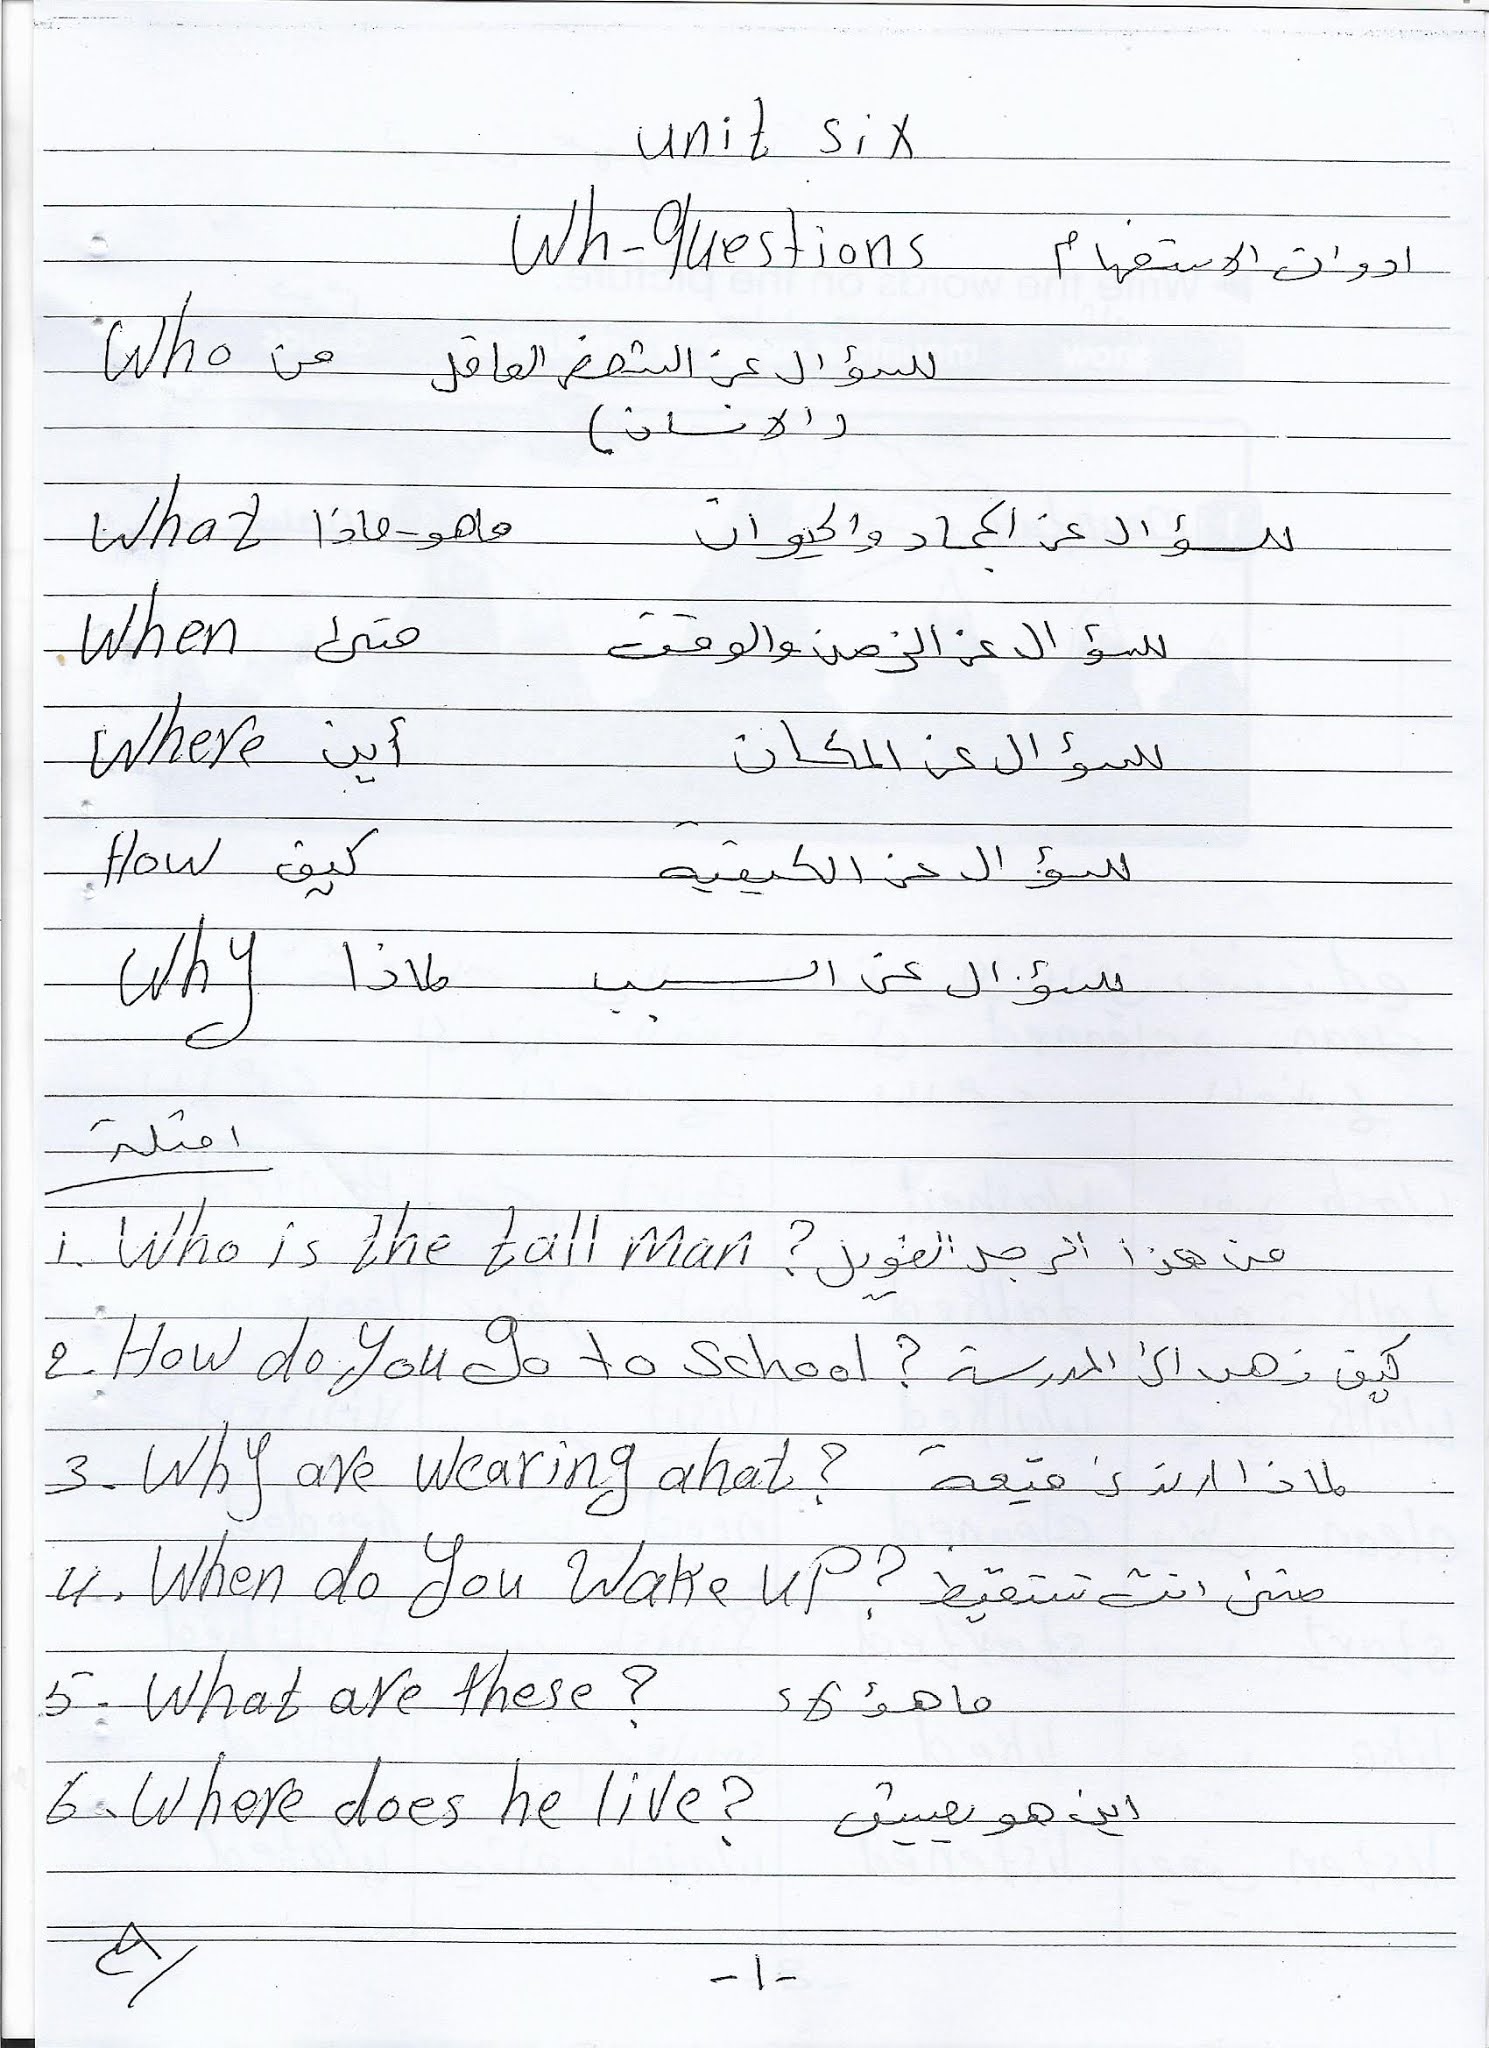 unit six
Wh-Questions ادوات الاستفهام
Who من للسؤال عن الشخص العاقل
(الانسان)
What ماهو-ماذا للسؤال عن الجماد والحيوان
When متى للسؤال عن الزمن والوقت
Where أين للسؤال عن المكان
How كيف للسؤال عن الكيفية
Why لماذا للسؤال عن السبب
امثلة
1. Who is the tall man? من هذا الرجل الطويل
2. How do you go to school? كيف تذهب الى المدرسة
3. Why are wearing a hat? لماذا ارتدى قبعة
4. When do you wake up? متى انت تستقيظ
5. What are these? ما هؤلاء
6. Where does he live? اين هو يعيش
-1-